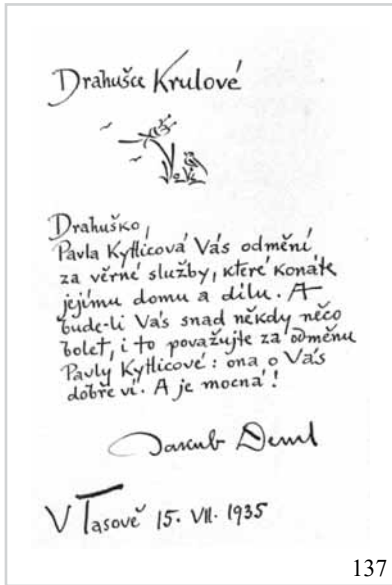 Drahušce Krulové
Drahuško,
Pavla Kytlicová Vás odmění
za věrné služby, které konáte
jejímu domu a dílu. A
bude-li Vás snad někdy něco
bolet, i to považujte za odměnu
Pavly Kytlicové: ona o Vás
dobře ví. A je mocná!
Jakub Deml
V Tasově 15. VII. 1935
137